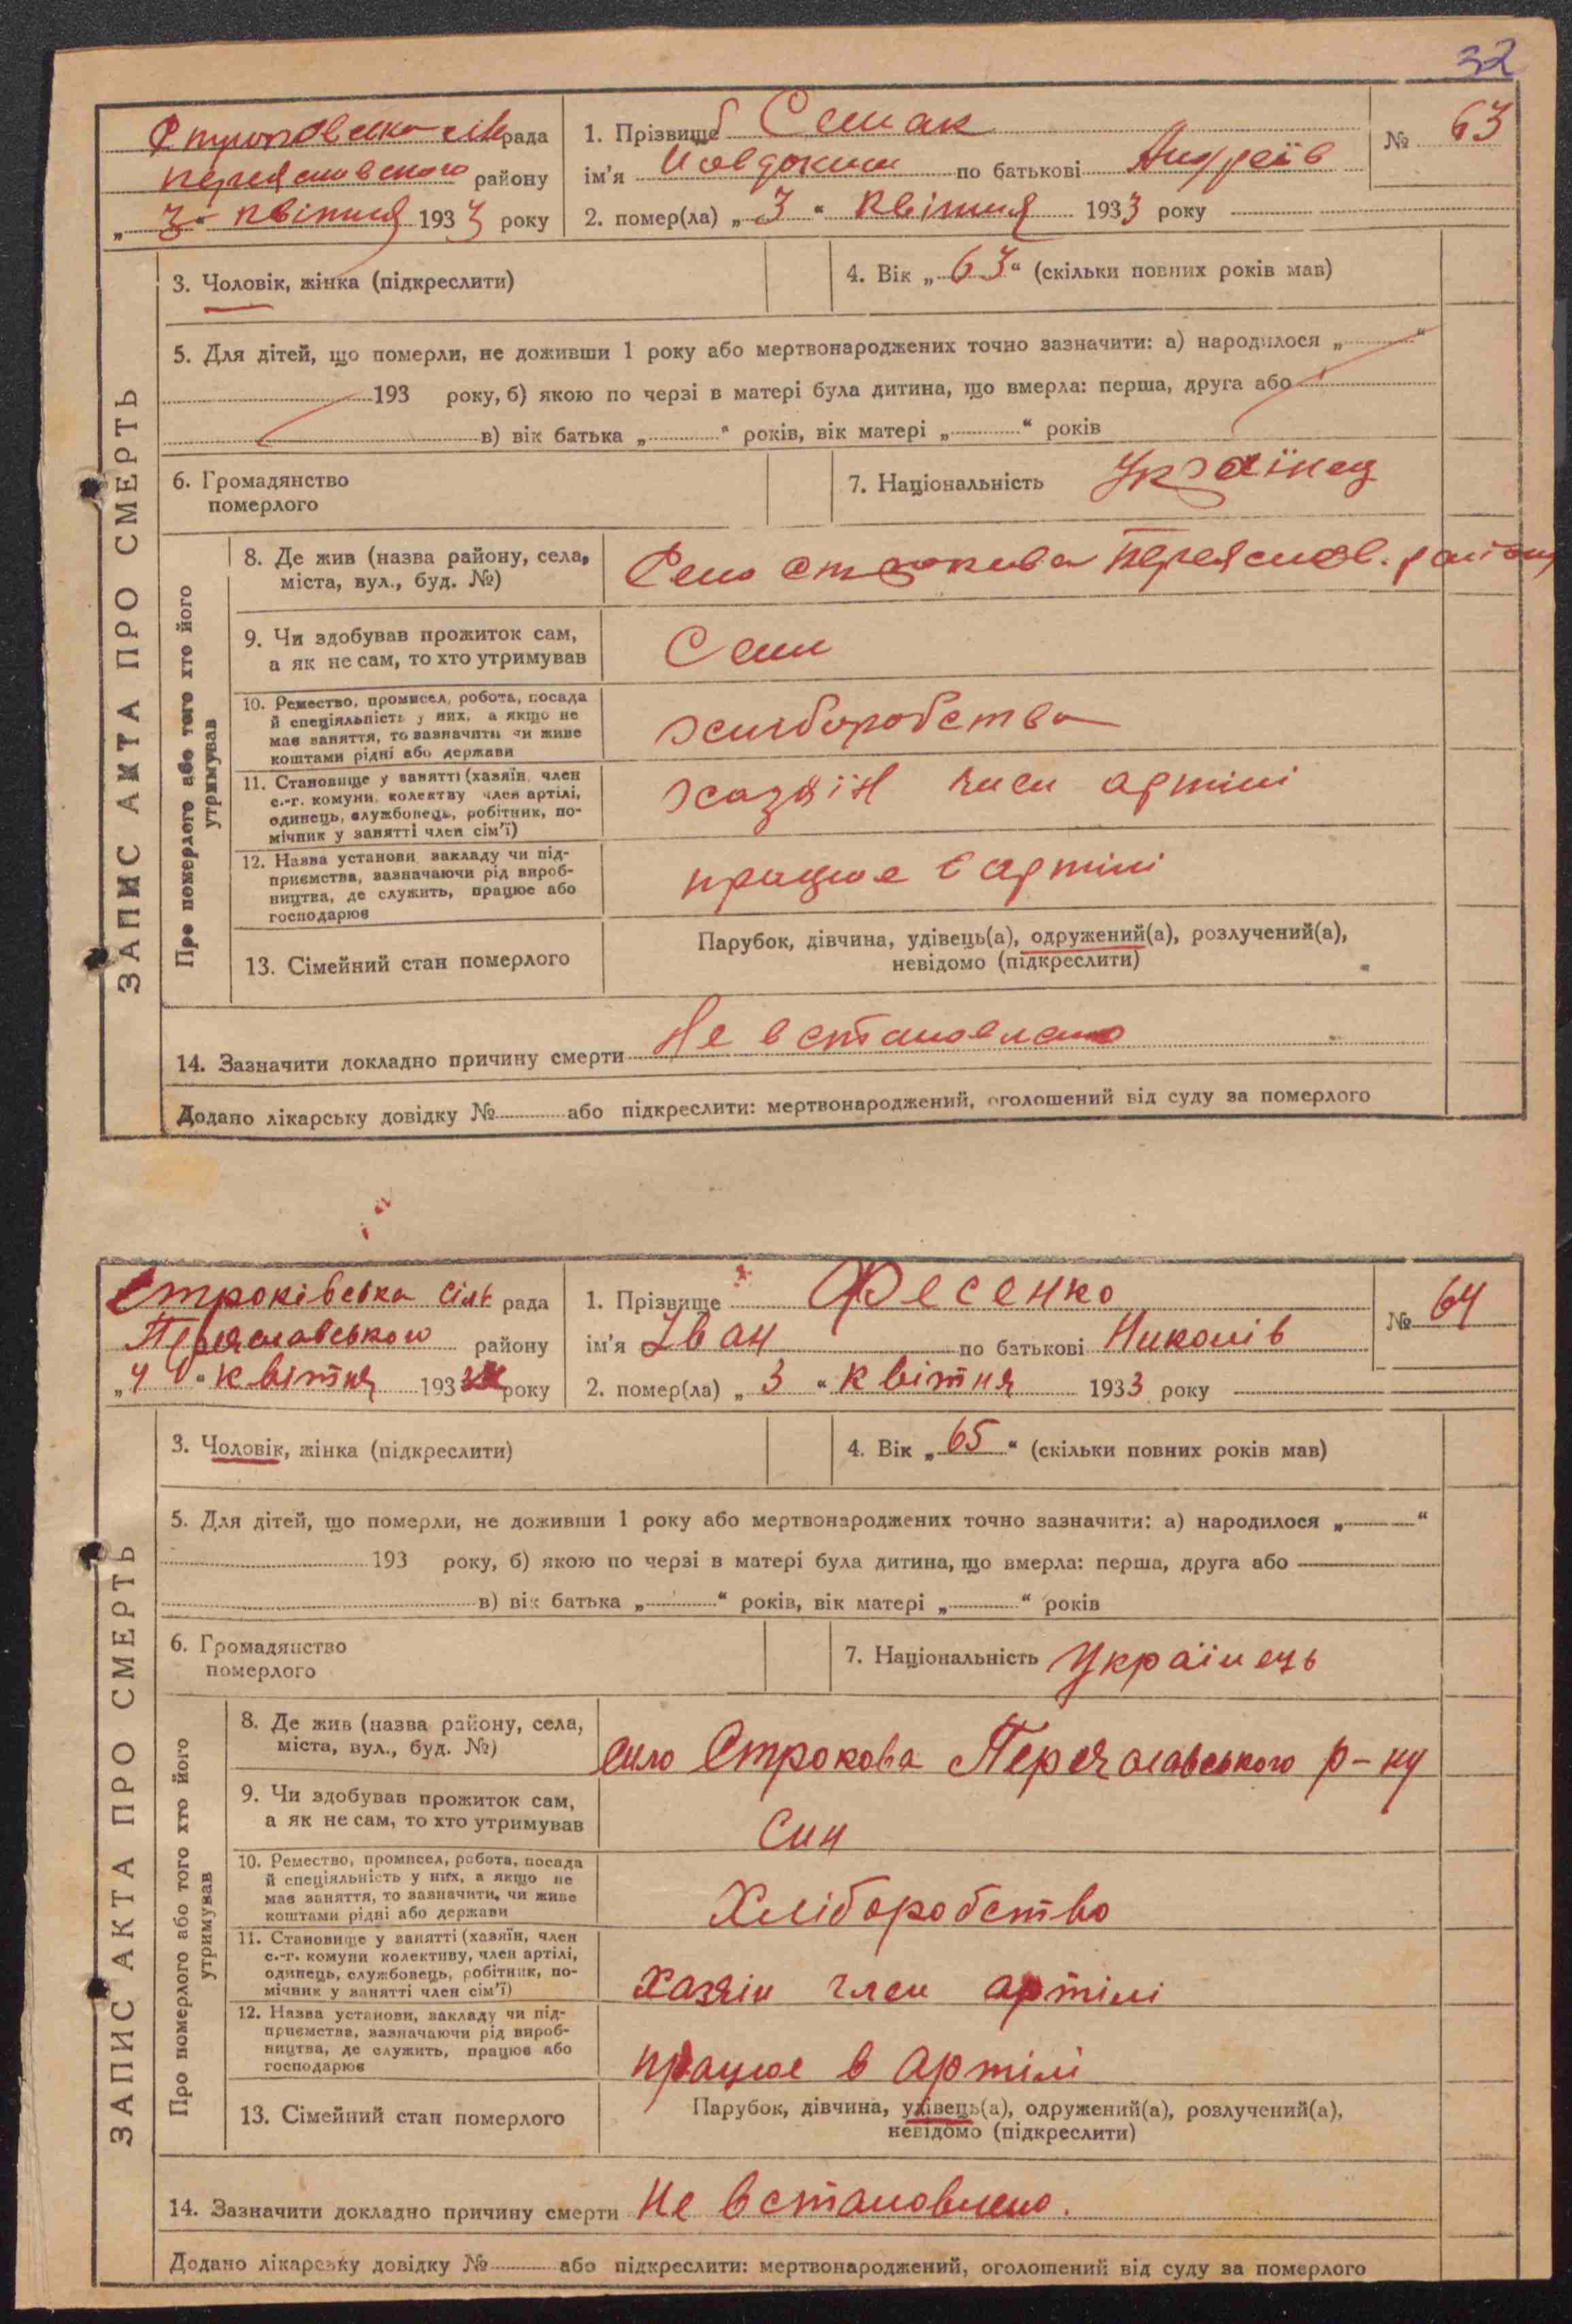 32
Строковська сіл рада
Переяславского району
„3“ квітня 1933 року
1. Прізвище Семак
ім'я Йовдоким по батькові Андреїв
2. помер(ла) „3“ квітня 1933 року
№ 63
3. Чоловік, жінка (підкреслити)
4. Вік „63“ (скільки повних років мав)
5. Для дітей, що померли, не доживши 1 року або мертвонароджених точно зазначити: а) народилося „ “
193 року, б) якою по черзі в матері була дитина, що вмерла: перша, друга або
в) вік батька „ “ років, вік матері „ “ років
6. Громадянство
померлого
7. Національність Українец
ЗАПИС АКТА ПРО СМЕРТЬ
Про померлого або того хто його
утримував
8. Де жив (назва району, села,
міста, вул., буд. №)
Село Строкова Переяслов. району
9. Чи здобував прожиток сам,
а як не сам, то хто утримував
Сам
10. Ремество, промисел, робота, посада
й спеціяльність у них, а якщо не
має заняття, то зазначити чи живе
коштами рідні або держави
хліборобство
11. Становище у занятті (хазяїн, член
с.-г. комуни, колективу член артілі,
одинець, службовець, робітник, по-
мічник у занятті член сім'ї)
хазяїн член артілі
12. Назва установи, закладу чи під-
приємства, зазначаючи рід вироб-
ництва, де служить, працює або
господарює
працює в артілі
13. Сімейний стан померлого
Парубок, дівчина, удівець(а), одружений(а), розлучений(а),
невідомо (підкреслити)
14. Зазначити докладно причину смерти Не встановлено
Додано лікарську довідку № або підкреслити: мертвонароджений, оголошений від суду за померлого
Строківська сіль рада
Переяславського району
„4“ квітня 193 року
1. Прізвище Фесенко
ім'я Іван по батькові Николів
2. помер(ла) „3“ квітня 1933 року
№ 64
3. Чоловік, жінка (підкреслити)
4. Вік „65“ (скільки повних років мав)
5. Для дітей, що померли, не доживши 1 року або мертвонароджених точно зазначити: а) народилося „ “
193 року, б) якою по черзі в матері була дитина, що вмерла: перша, друга або
в) вік батька „ “ років, вік матері „ “ років
6. Громадянство
померлого
7. Національність Українець
ЗАПИС АКТА ПРО СМЕРТЬ
Про померлого або того хто його
утримував
8. Де жив (назва району, села,
міста, вул., буд. №)
село Строкова Переяславського р-ну
9. Чи здобував прожиток сам,
а як не сам, то хто утримував
Син
10. Ремество, промисел, робота, посада
й спеціяльність у них, а якщо не
має заняття, то зазначити, чи живе
коштами рідні або держави
Хліборобство
11. Становище у занятті (хазяїн, член
с.-г. комуни колективу, член артілі,
одинець, службовець, робітник, по-
мічник у занятті член сім'ї)
Хазяін член артілі
12. Назва установи, закладу чи під-
приємства, зазначаючи рід вироб-
ництва, де служить, працює або
господарює
працює в артілі
13. Сімейний стан померлого
Парубок, дівчина, удівець(а), одружений(а), розлучений(а),
невідомо (підкреслити)
14. Зазначити докладно причину смерти Не встановлено.
Додано лікарську довідку № або підкреслити: мертвонароджений, оголошений від суду за померлого